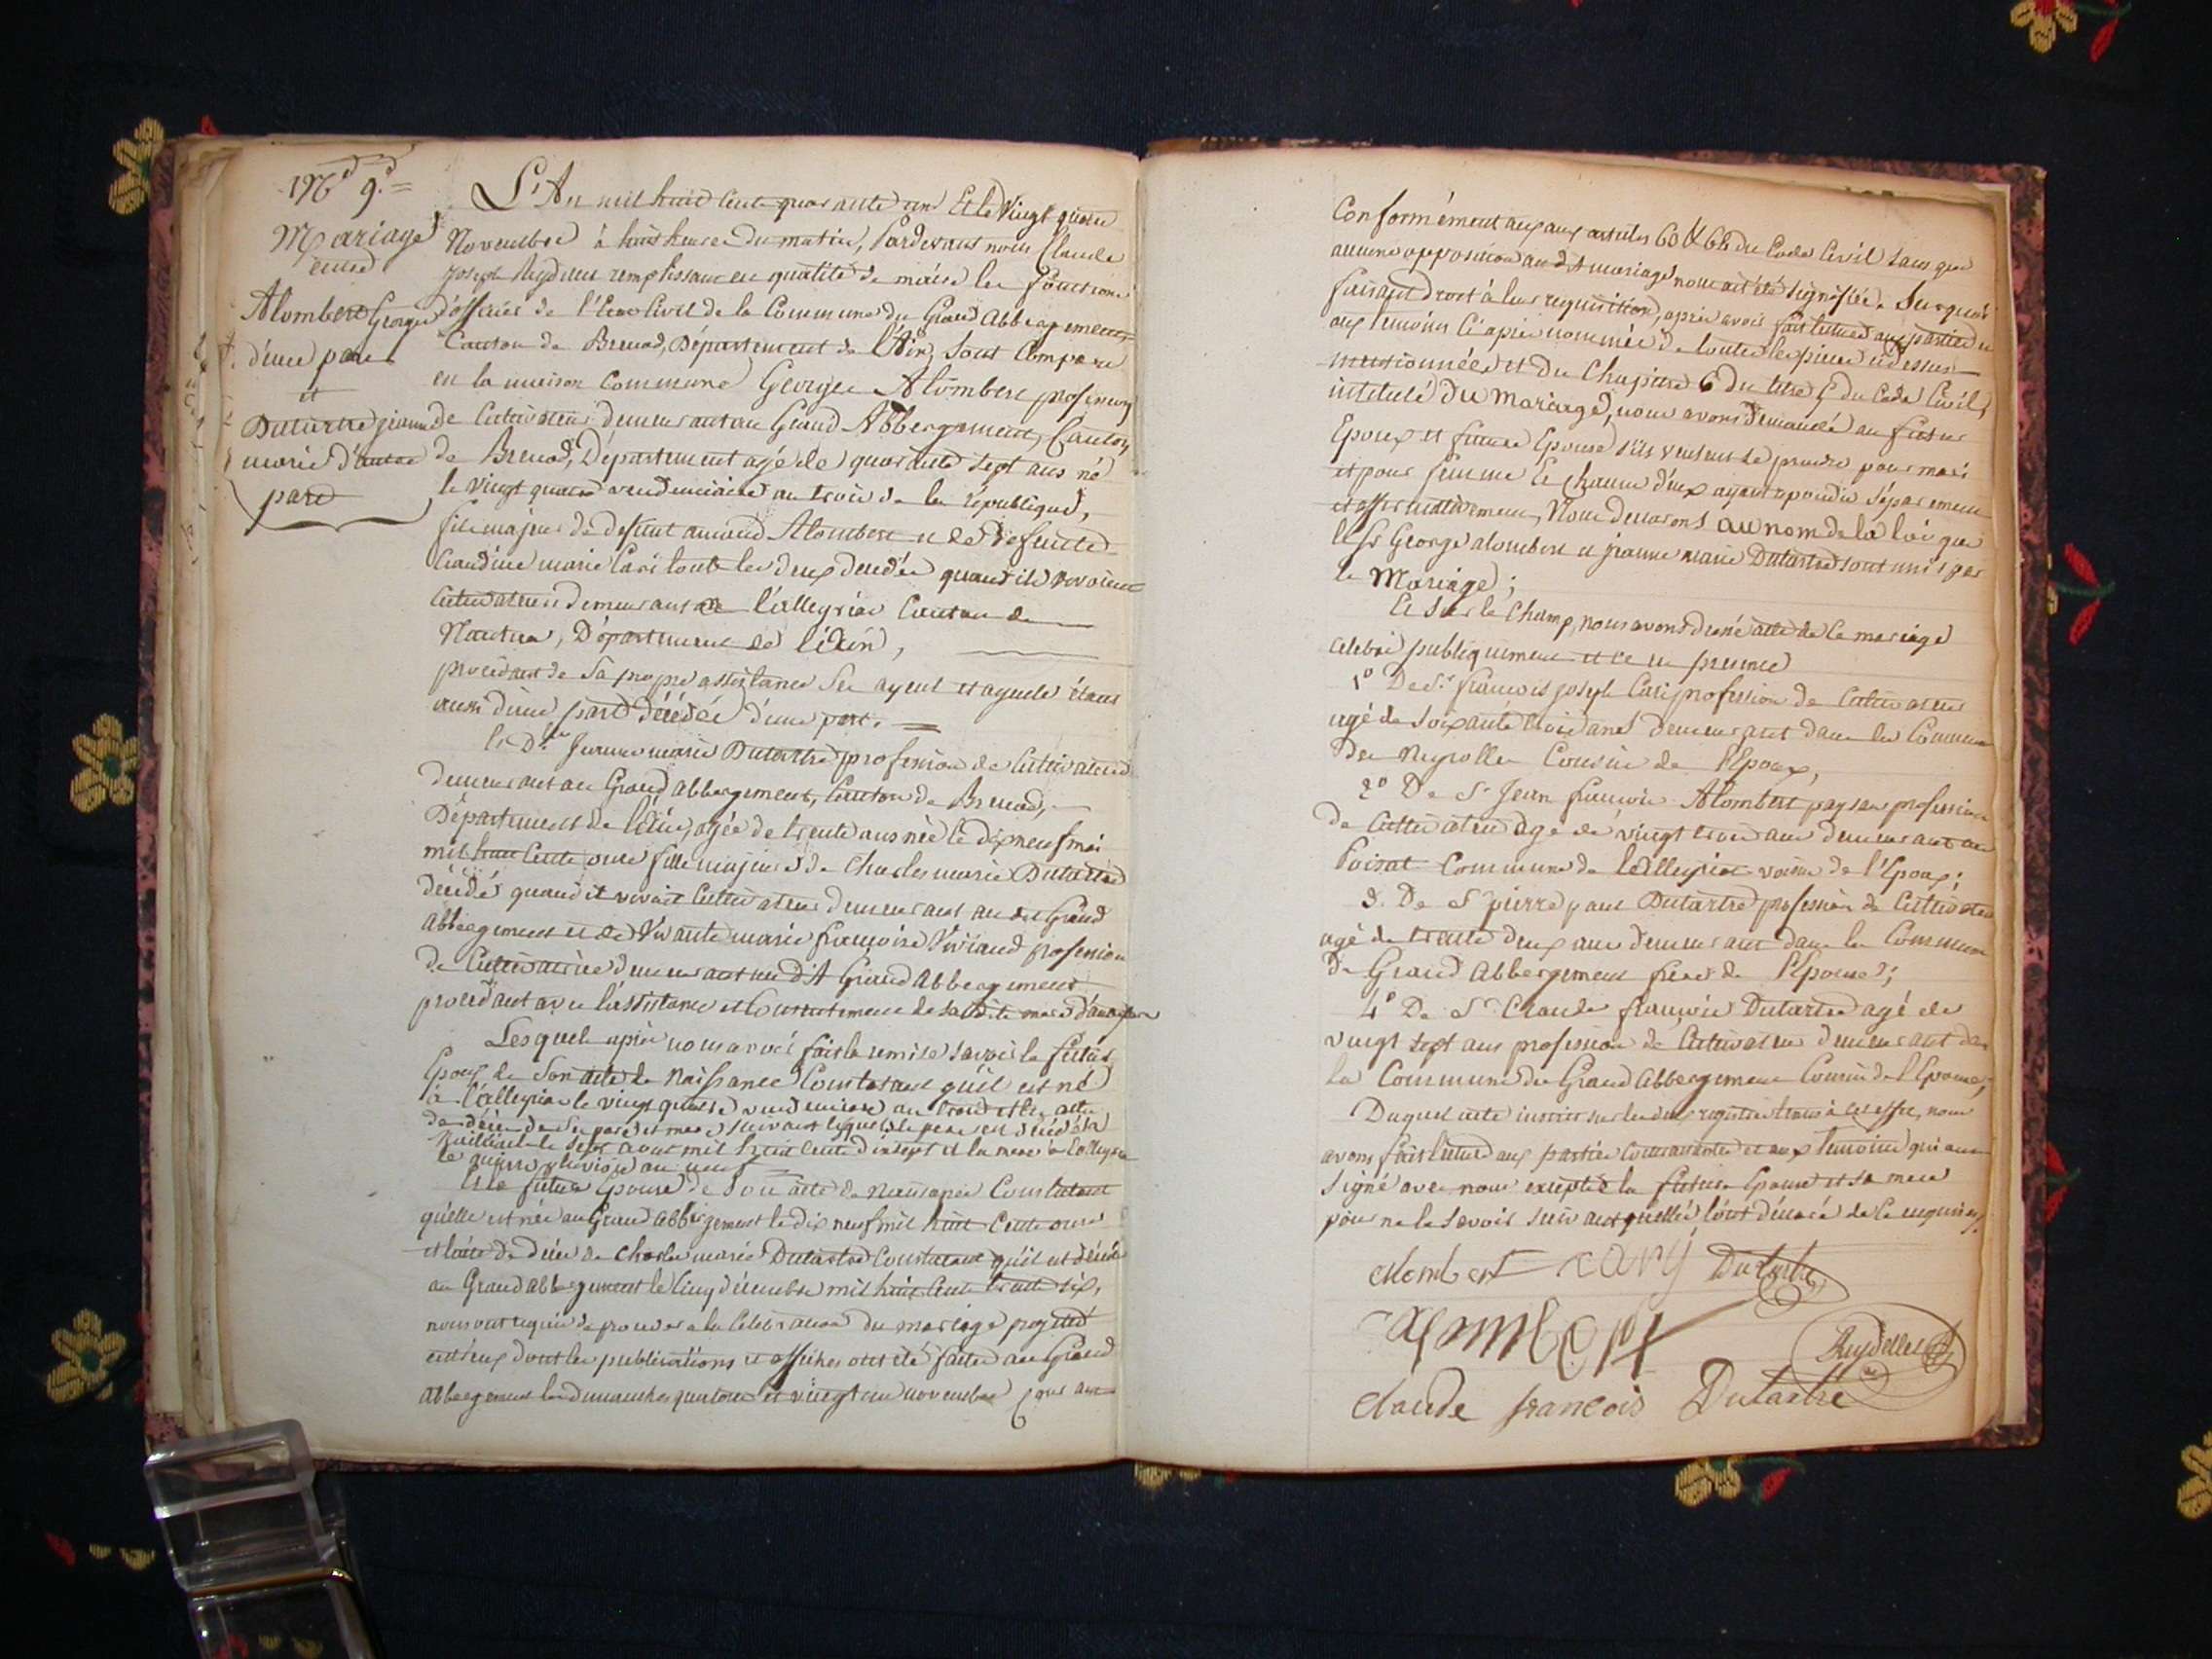 196 9.
Mariage
entre
Alombert George
d'une part
et
Dutartre jeanne
marie d'autre
part
L'An mil huit cent quarante un Et le Vingt quatre
Novembre à huit heures du matin, Pardevant nous Claude
Joseph Reydellet remplissant en qualité de maire les fonctions
d'officier de l'Etat Civil de la Commune du Grand Abbergement
Canton de Brenod, Département de l'Ain, Sont Comparu
en la maison Commune George Alombert profession
de Cultivateur demeurant au Grand Abbergement, Canton
de Brenod, Département agé de quarante sept ans né
le vingt quatre vendemiaire an trois de la république,
fils majeur de defunt Alombert et de defunte
Claudine marie Cari tout les deux decedés quand ils vivoient
Cultivateurs demeurant a l'allegriat Canton de
Nantua, Département de l'Ain,
procedant de sa propre assistance Ses ayeul et ayeule étant
aussi d'une part décédés d'une part.
Et Dlle Jeanne marie Dutartre profession de Cultivatrice
demeurant au Grand abbergement, Canton de Brenod,
Département de l'Ain, agée de trente ans née le dix neuf mai
mil huit cent onze fille majeure de Charles marie Dutartre
décédé quand il vivait Cultivateur demeurant au dit Grand
Abbergement et de Vivante marie françoise Viviand profession
de Cultivatrice demeurant au dit Grand abbergement
procedant avec l'assistance et Consentement de sa dite mere d'autre part
Lesquels après nous avoir fait la remise savoir le futur
Epoux de Son acte de Naissance Constatant qu'il est né
à l'allegriat le vingt quatre vendemiaire an trois et les actes
de décès de Ses pere et mere suivant lesquels le pere est décédé à
le sept aout mil huit cent dix sept et la mere a l'allegriat
le quinze pluviose an neuf
Et la future Epouse de Son acte de Naissance Constatant
qu'elle est née au Grand abbergement le dix neuf mil huit cent onze
et l'acte de décès de Charles marie Dutartre Constatant qu'il est décédé
au Grand abbergement le cinq décembre mil huit cent trente six,
nous ont requis de proceder a la Celebration du mariage projetté
entr'eux dont les publications et affiches ont été faites au Grand
abbergement les dimanches quatorze et vingt un novembre
Conformément aux aux articles 63 & 64 du Code Civil sans que
aucune opposition au dit mariage nous ait été signifiée. Surquoi
faisant droit à leur requisition, après avoir fait lecture aux parties et
aux temoins ci après nommés de toutes les pieces ci dessus
mentionnées et du Chapitre 6 du titre 5 du Code Civil,
intitulé Du Mariage, nous avons demandé au futur
Epoux et future Epouse s'ils veulent se prendre pour mari
et pour femme et chacun d'eux ayant répondu Séparement
et affirmativement, Nous declarons au nom de la loi que
le Sr George alombert et jeanne marie Dutartre sont unis par
le Mariage;
Et Sur le Champ, nous avons dressé acte de ce mariage
celebré publiquement et ce en presence
1º De Sr françois joseph Cari profession de Cultivateur
agé de soixante trois ans demeurant dans la Commune
des Neyrolles Cousin de l'Epoux,
2º De Sr Jean françois Alombert paysan profession
de Cultivateur agé de vingt trois ans demeurant au
Poisat Commune de l'allegriat voisin de l'Epoux;
3. De Sr pierre paul Dutartre profession de Cultivateur
agé de trente deux ans demeurant dans la Commune
du Grand Abbergement frere de l'Epouse;
4º De Sr Claude françois Dutartre agé de
vingt sept ans profession de Cultivateur demeurant dans
la Commune du Grand Abbergement Cousin de l'Epouse,
Duquel acte inscrit sur les deux registres tenus à cet effet, nous
avons fait lecture aux parties Contractantes et aux temoins qui ont
Signé avec nous excepté la future Epouse et sa mere
pour ne le savoir suivant qu'elles l'ont déclaré de ce enquises.
alombert cary Dutartre
alombert
Reydellet
claude francois Dutartre